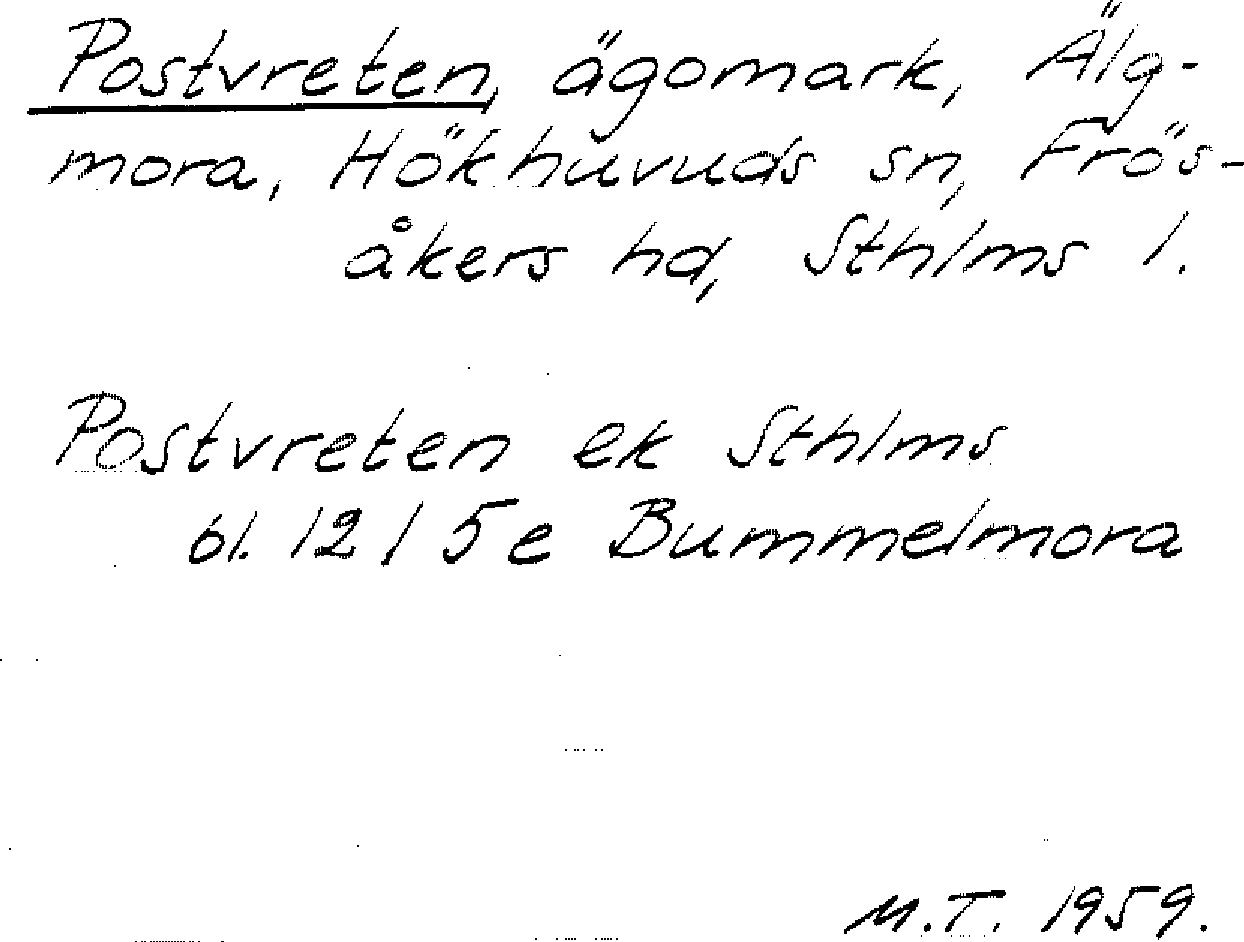 Postvreten, ägomark, Älg-
mora, Hökhuvuds sn, Frös-
åkers hd, Sthlms l.
Postvreten ek Sthlms
bl. 12 I 5e Bummelmora
M.T. 1959.